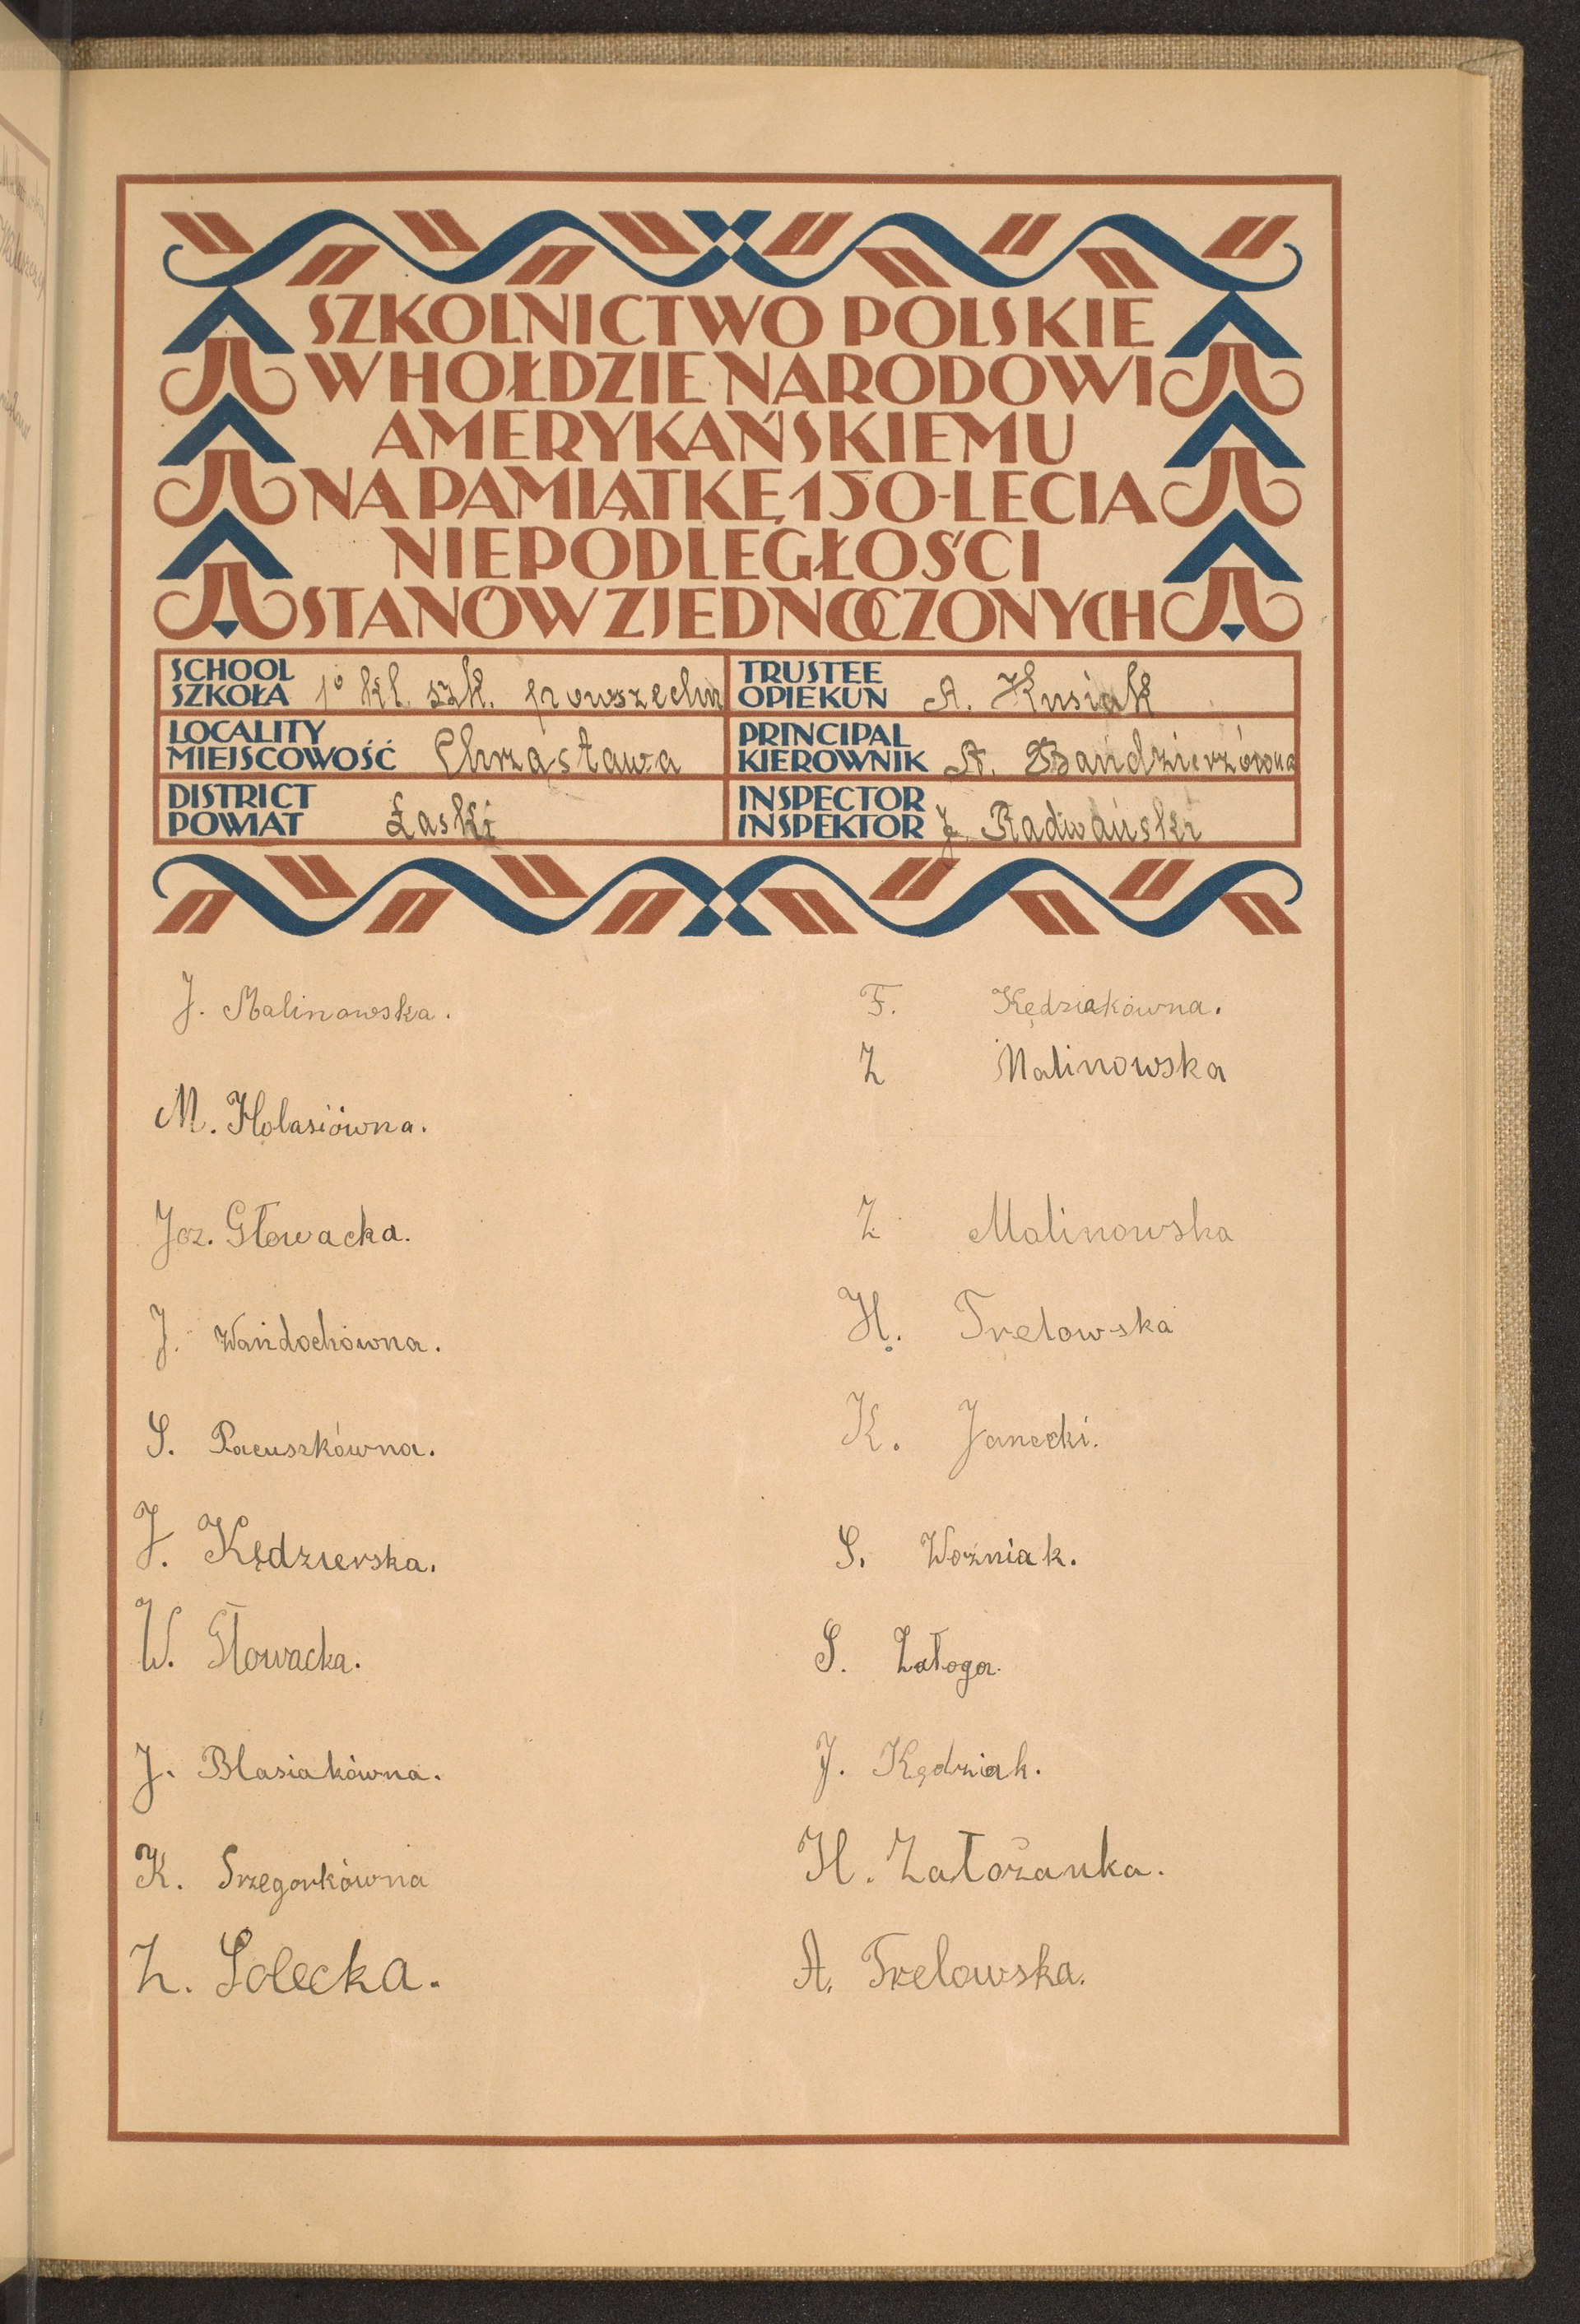 SZKOLNICTWO POLSKIE
W HOŁDZIE NARODOWI
AMERYKAŃSKIEMU
NA PAMIĄTKĘ 150-LECIA
NIEPODLEGŁOŚCI
STANÓW ZJEDNOCZONYCH
SCHOOL
SZKOŁA 1º kl. szk. powszechn
TRUSTEE
OPIEKUN A. Kusiak
LOCALITY
MIEJSCOWOŚĆ Chrząstawa
PRINCIPAL
KIEROWNIK St. Bandzierzówna
DISTRICT
POWIAT Łaski
INSPECTOR
INSPEKTOR J. Radwański
J. Malinowska.
M. Holasiówna.
Joz. Głowacka.
J. Wandochówna.
S. Pacuszkówna.
J. Kędzierska.
W. Głowacka.
J. Blasiakówna.
K. Grzegorkówna
Z. Solecka.
F. Kędziakówna.
Z Malinowska
Z Malinowska
H. Trelowska
K. Janecki.
S. Woźniak.
S. Załoga.
J. Kędziak.
H. Założanka.
A. Trelowska.